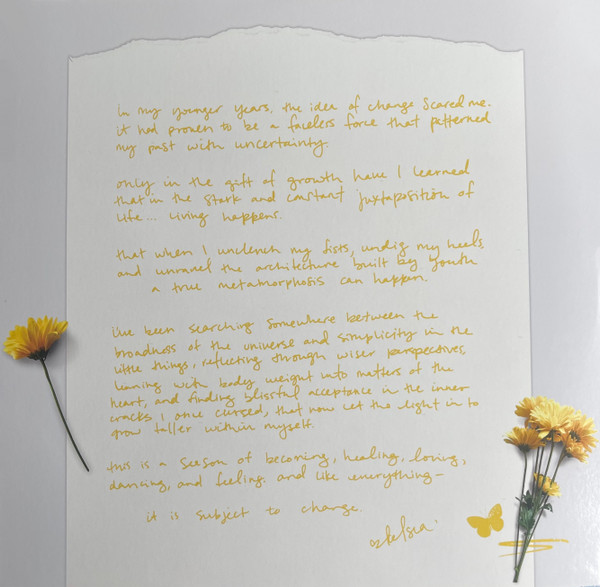 in my younger years, the idea of change scared me.
it had proven to be a faceless force that patterned
my past with uncertainty.
only in the gift of growth have I learned
that in the stark and constant juxtaposition of
life... living happens.
that when I unclench my fists, undig my heels
and unravel the architecture built by youth
a true metamorphosis can happen.
i've been searching somewhere between the
broadness of the universe and simplicity in the
little things, reflecting through wiser perspectives,
leaning with body weight into matters of the
heart, and finding blissful acceptance in the inner
cracks I once cursed, that now let the light in to
grow taller within myself.
this is a season of becoming, healing, loving,
dancing, and feeling. and like everything—
it is subject to change.
♡kelsea.